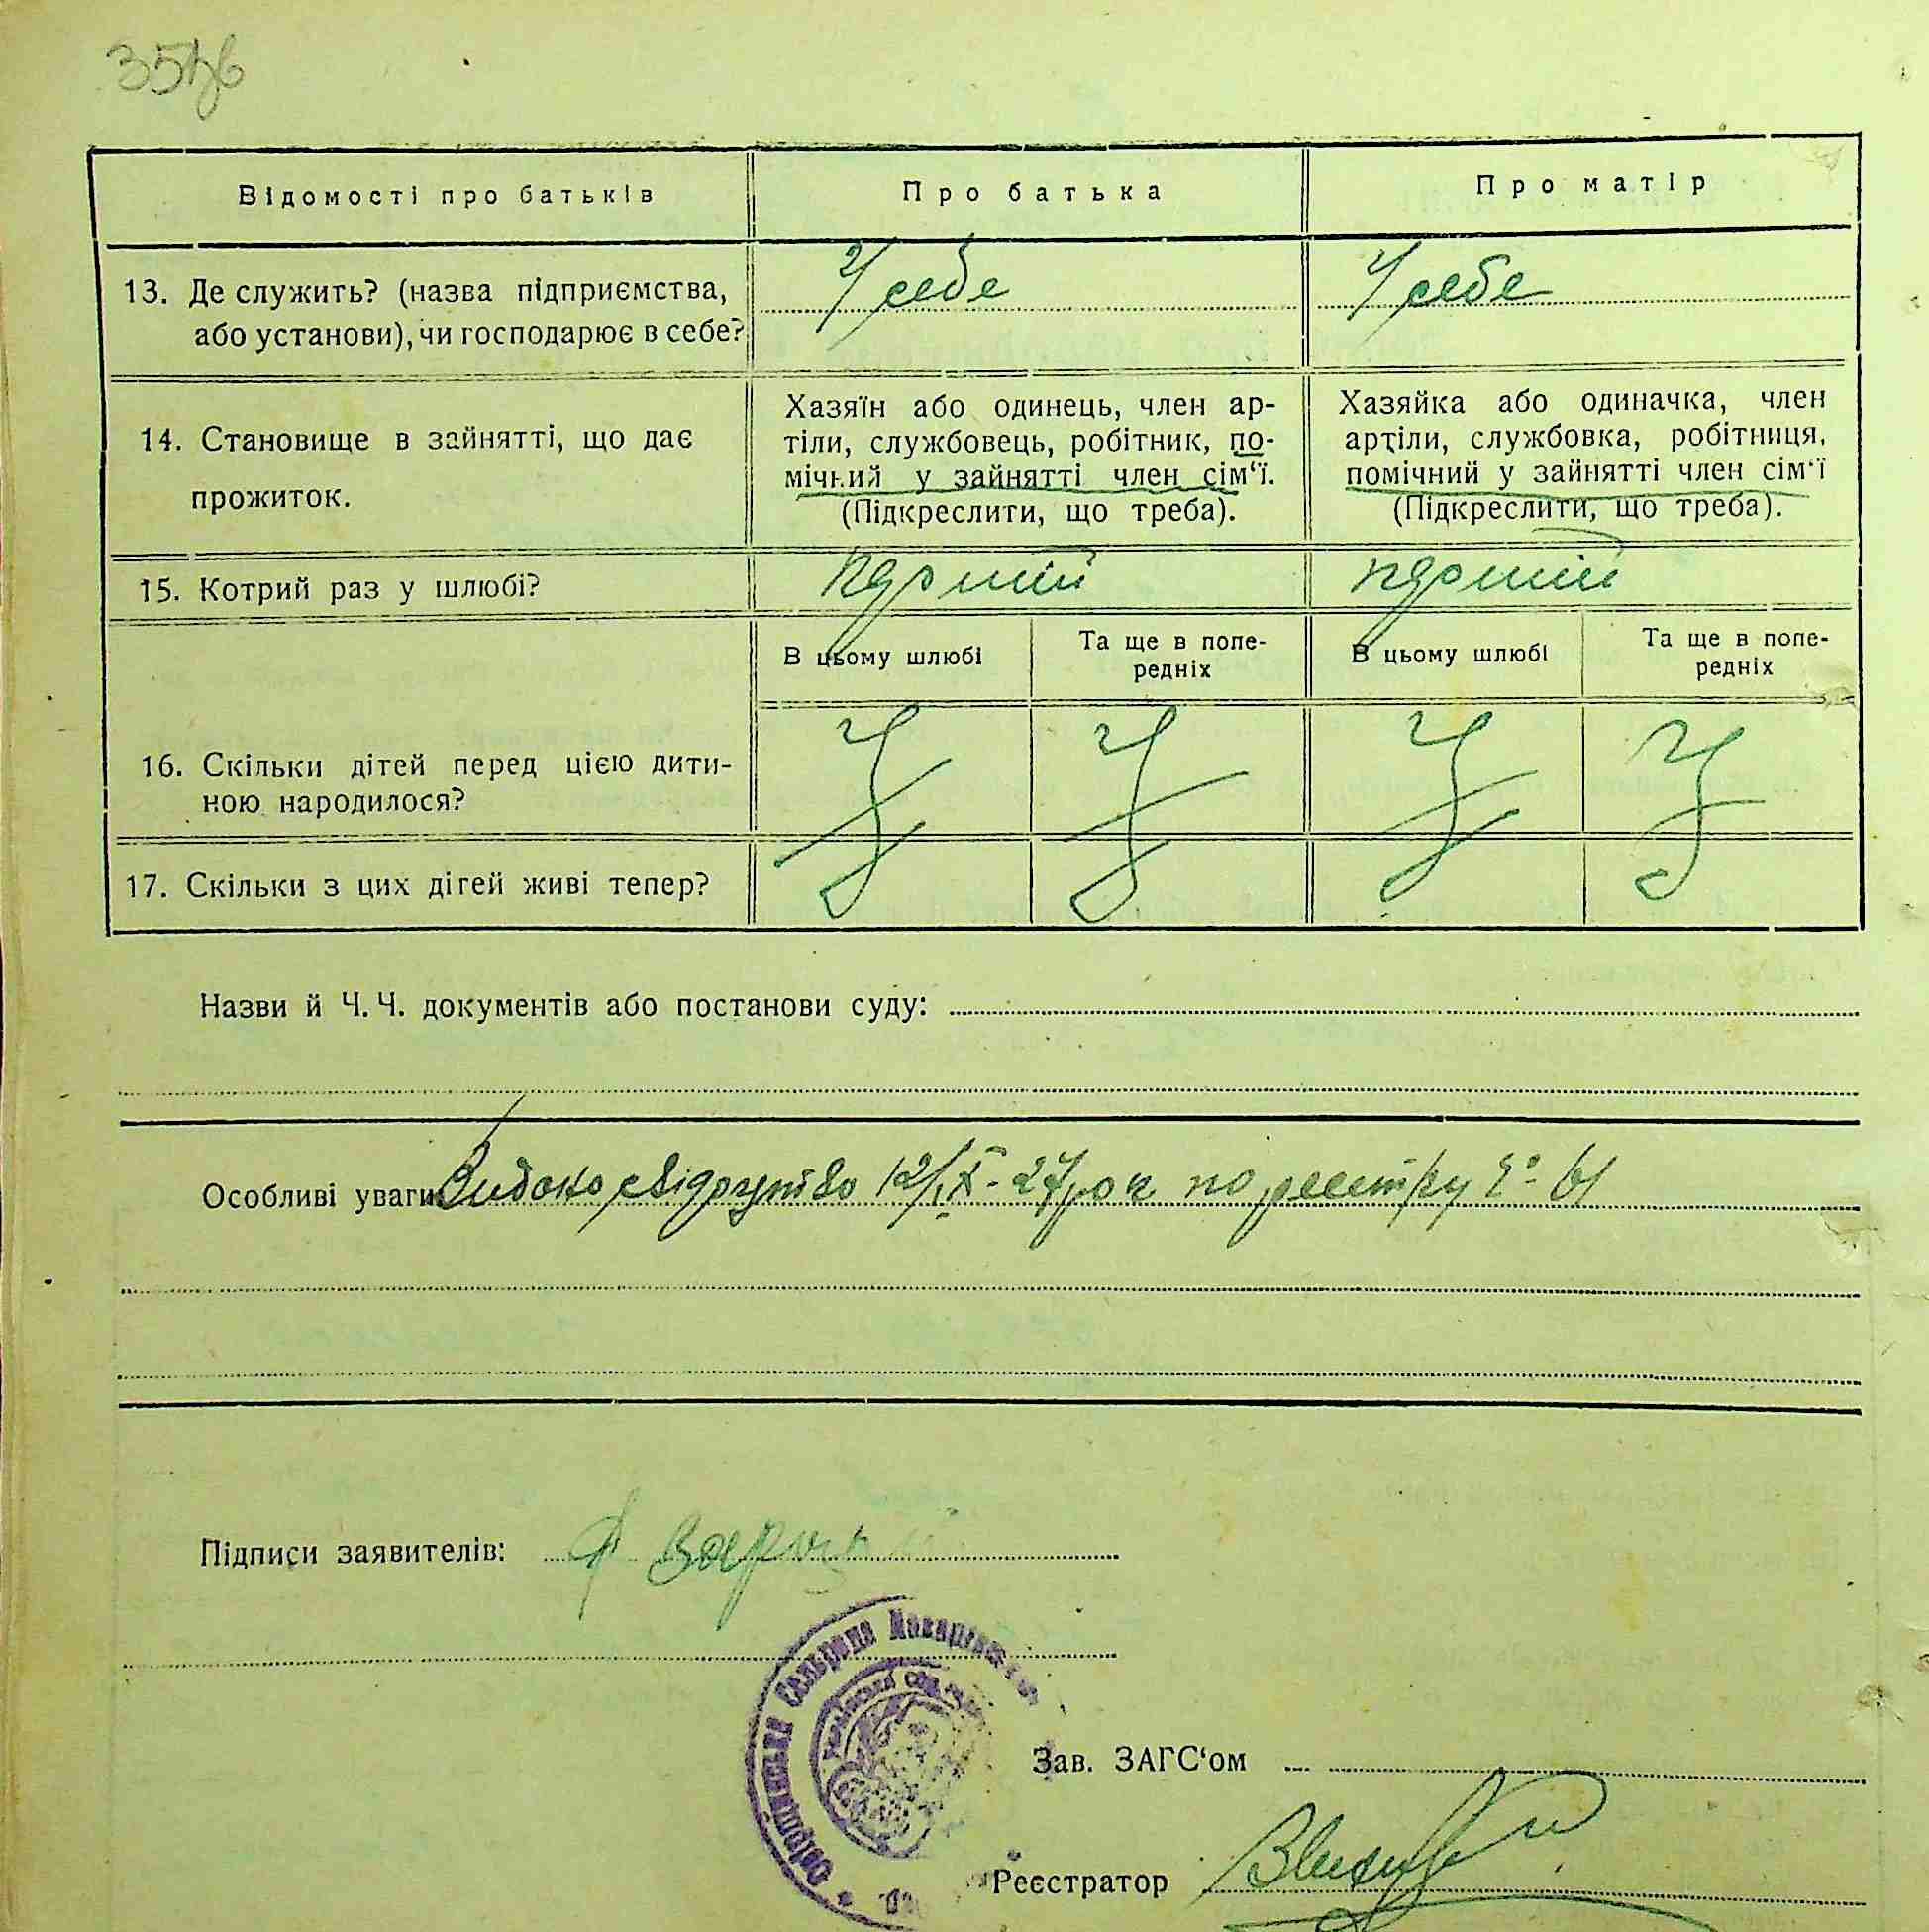 Відомості про батьків
Про батька
Про матір
13. Де служить? (назва підприємства, або установи), чи господарює в себе?
У себе
У себе
14. Становище в зайнятті, що дає прожиток.
Хазяїн або одинець, член ар-
тіли, службовець, робітник, по-
мічний у зайнятті член сім‘ї.
(Підкреслити, що треба).
Хазяйка або одиначка, член
артіли, службовка, робітниця,
помічний у зайнятті член сім‘ї
(Підкреслити, що треба).
15. Котрий раз у шлюбі?
перший
перший
В цьому шлюбі
Та ще в попе-
редніх
В цьому шлюбі
Та ще в попе-
редніх
16. Скільки дітей перед цією дити-
ною народилося?
17. Скільки з цих дітей живі тепер?
Назви й Ч. Ч. документів або постанови суду:
Особливі уваги: Видано свідоцтво 12/ІХ-27 рок по реєстру № 61
Підписи заявителів:
Сельрада
Зав. ЗАГС‘ом
Реєстратор